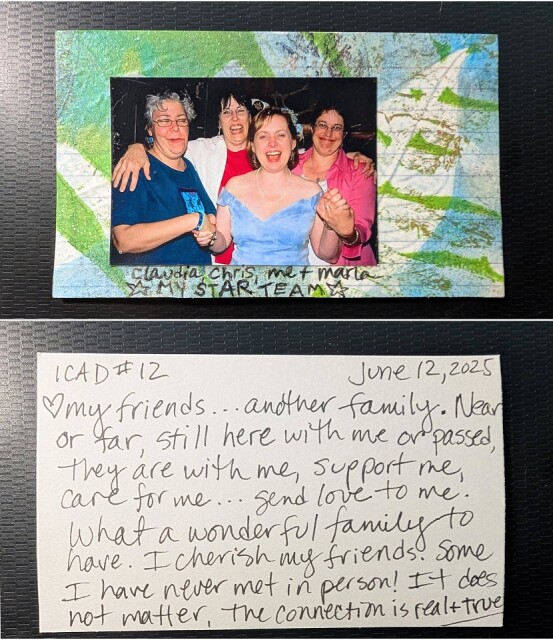 claudia, chris, me + marla
☆ MY STAR TEAM ☆
ICAD #12 June 12, 2025
♡my friends... another family. Near
or far, still here with me or passed,
they are with me, support me,
care for me... send love to me.
What a wonderful family to
have. I cherish my friends. Some
I have never met in person! It does
not matter, the connection is real + true